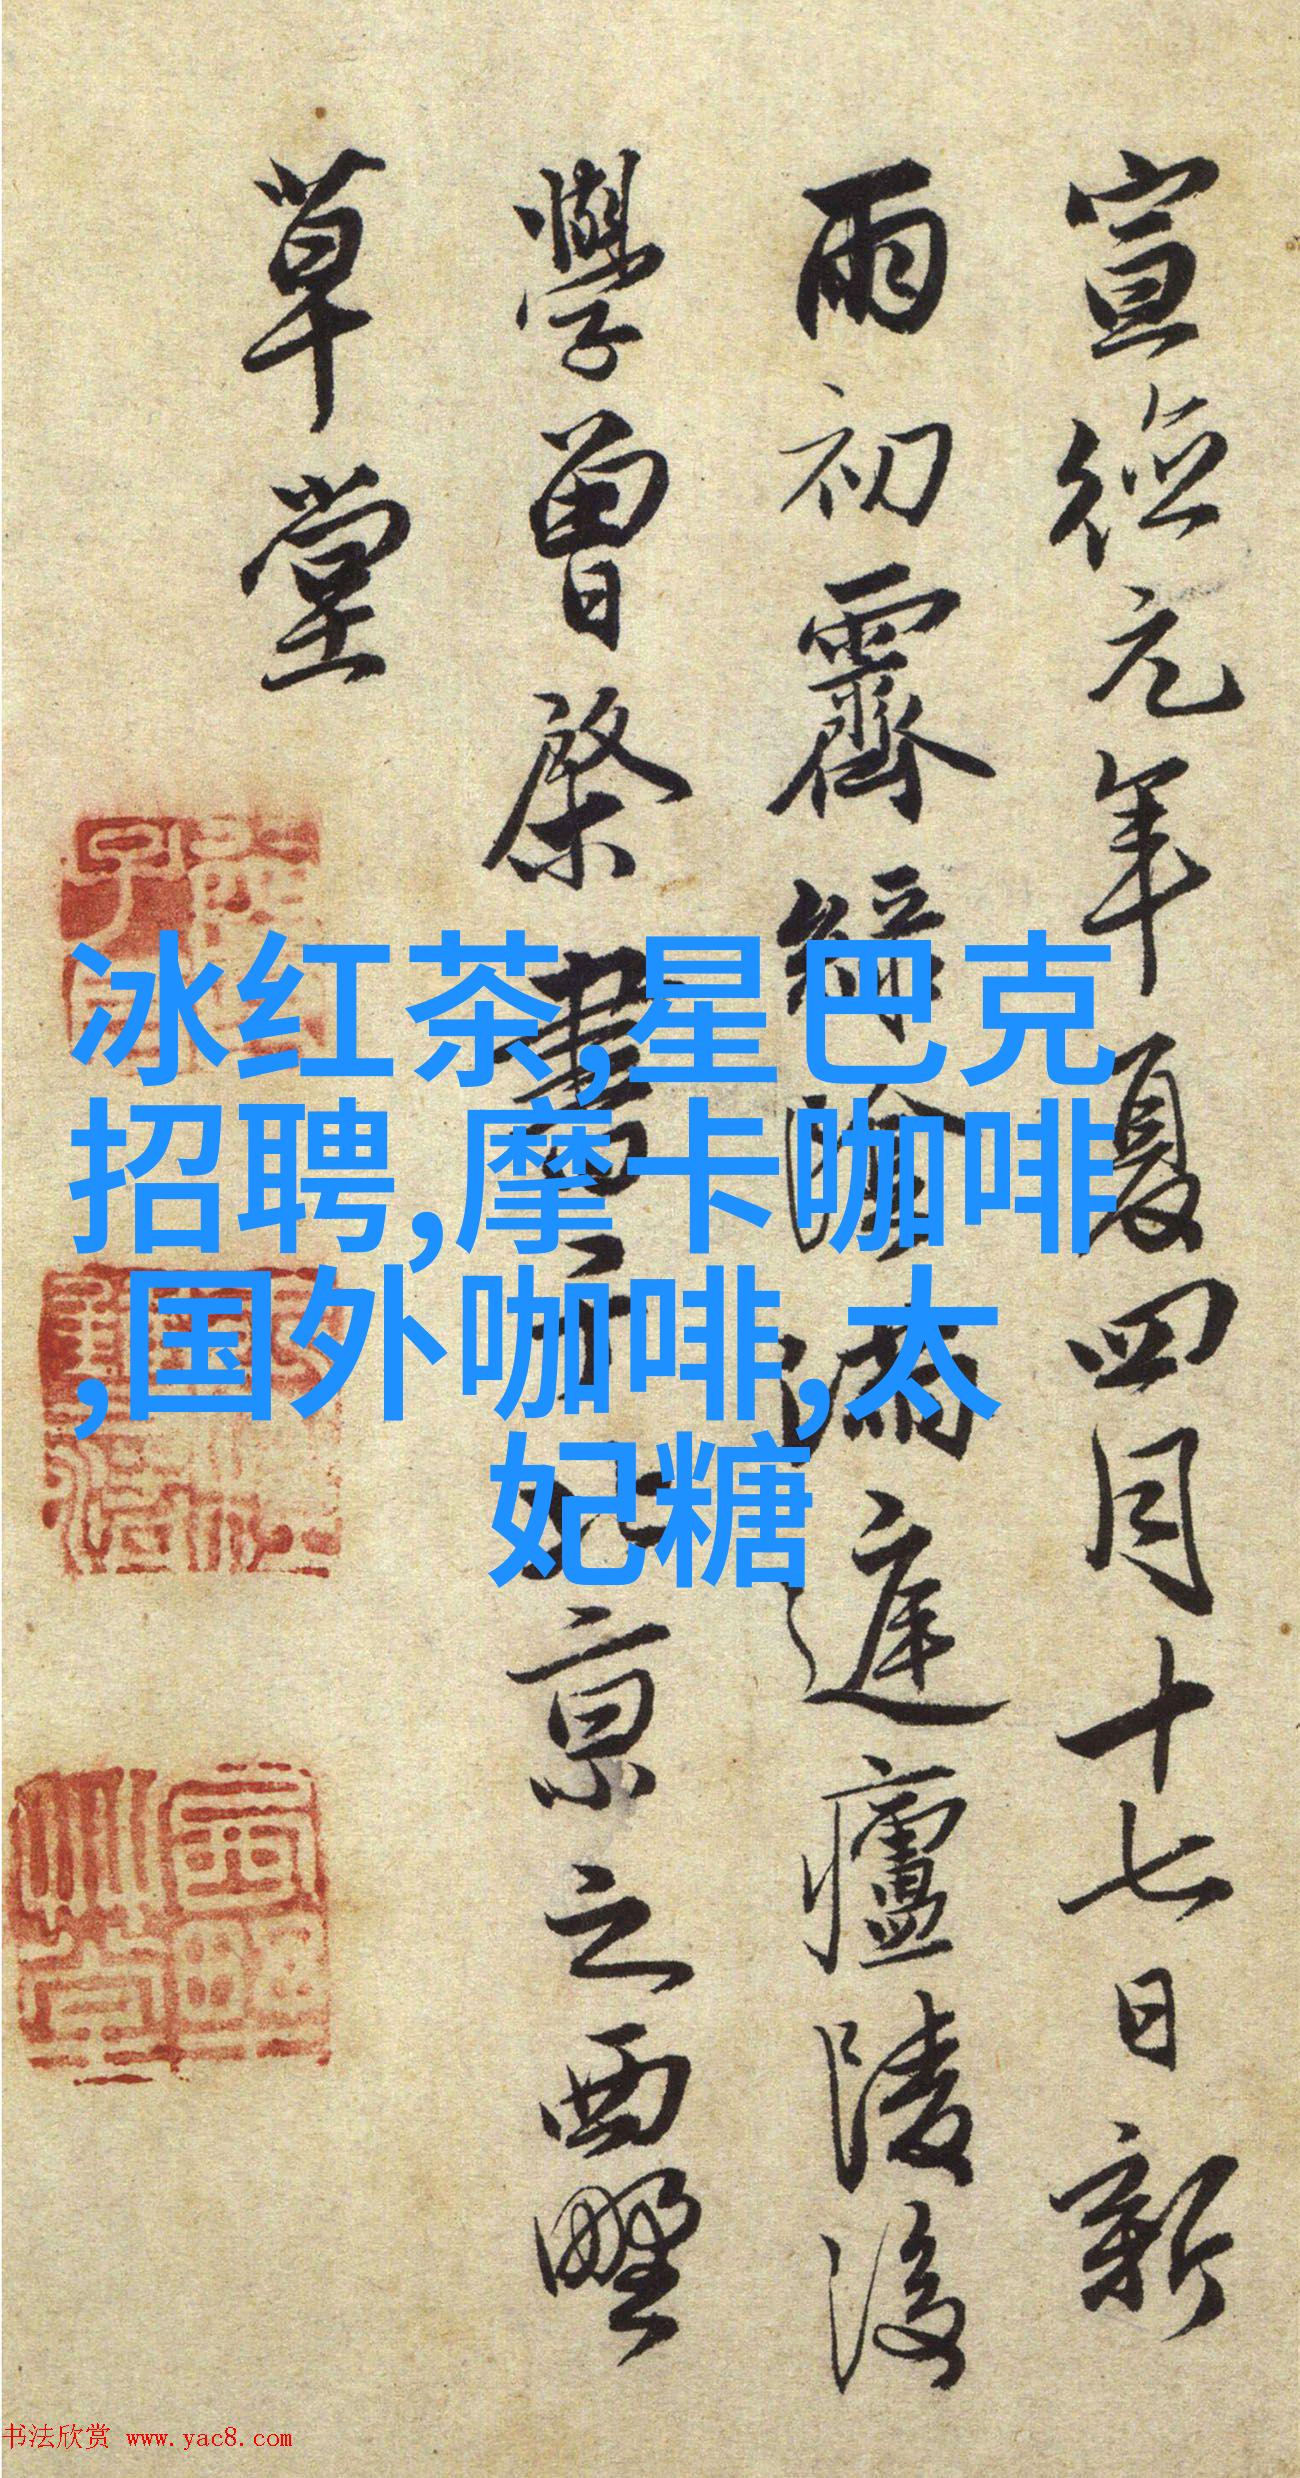 宣德元年夏四月十七日新
雨初霽綠陰滿庭廬陵後
學曾棨書于北京之西墅
草堂
冰红茶,星巴克
招聘,摩卡咖啡
,国外咖啡,太
妃糖
书法欣赏 www.yac8.com